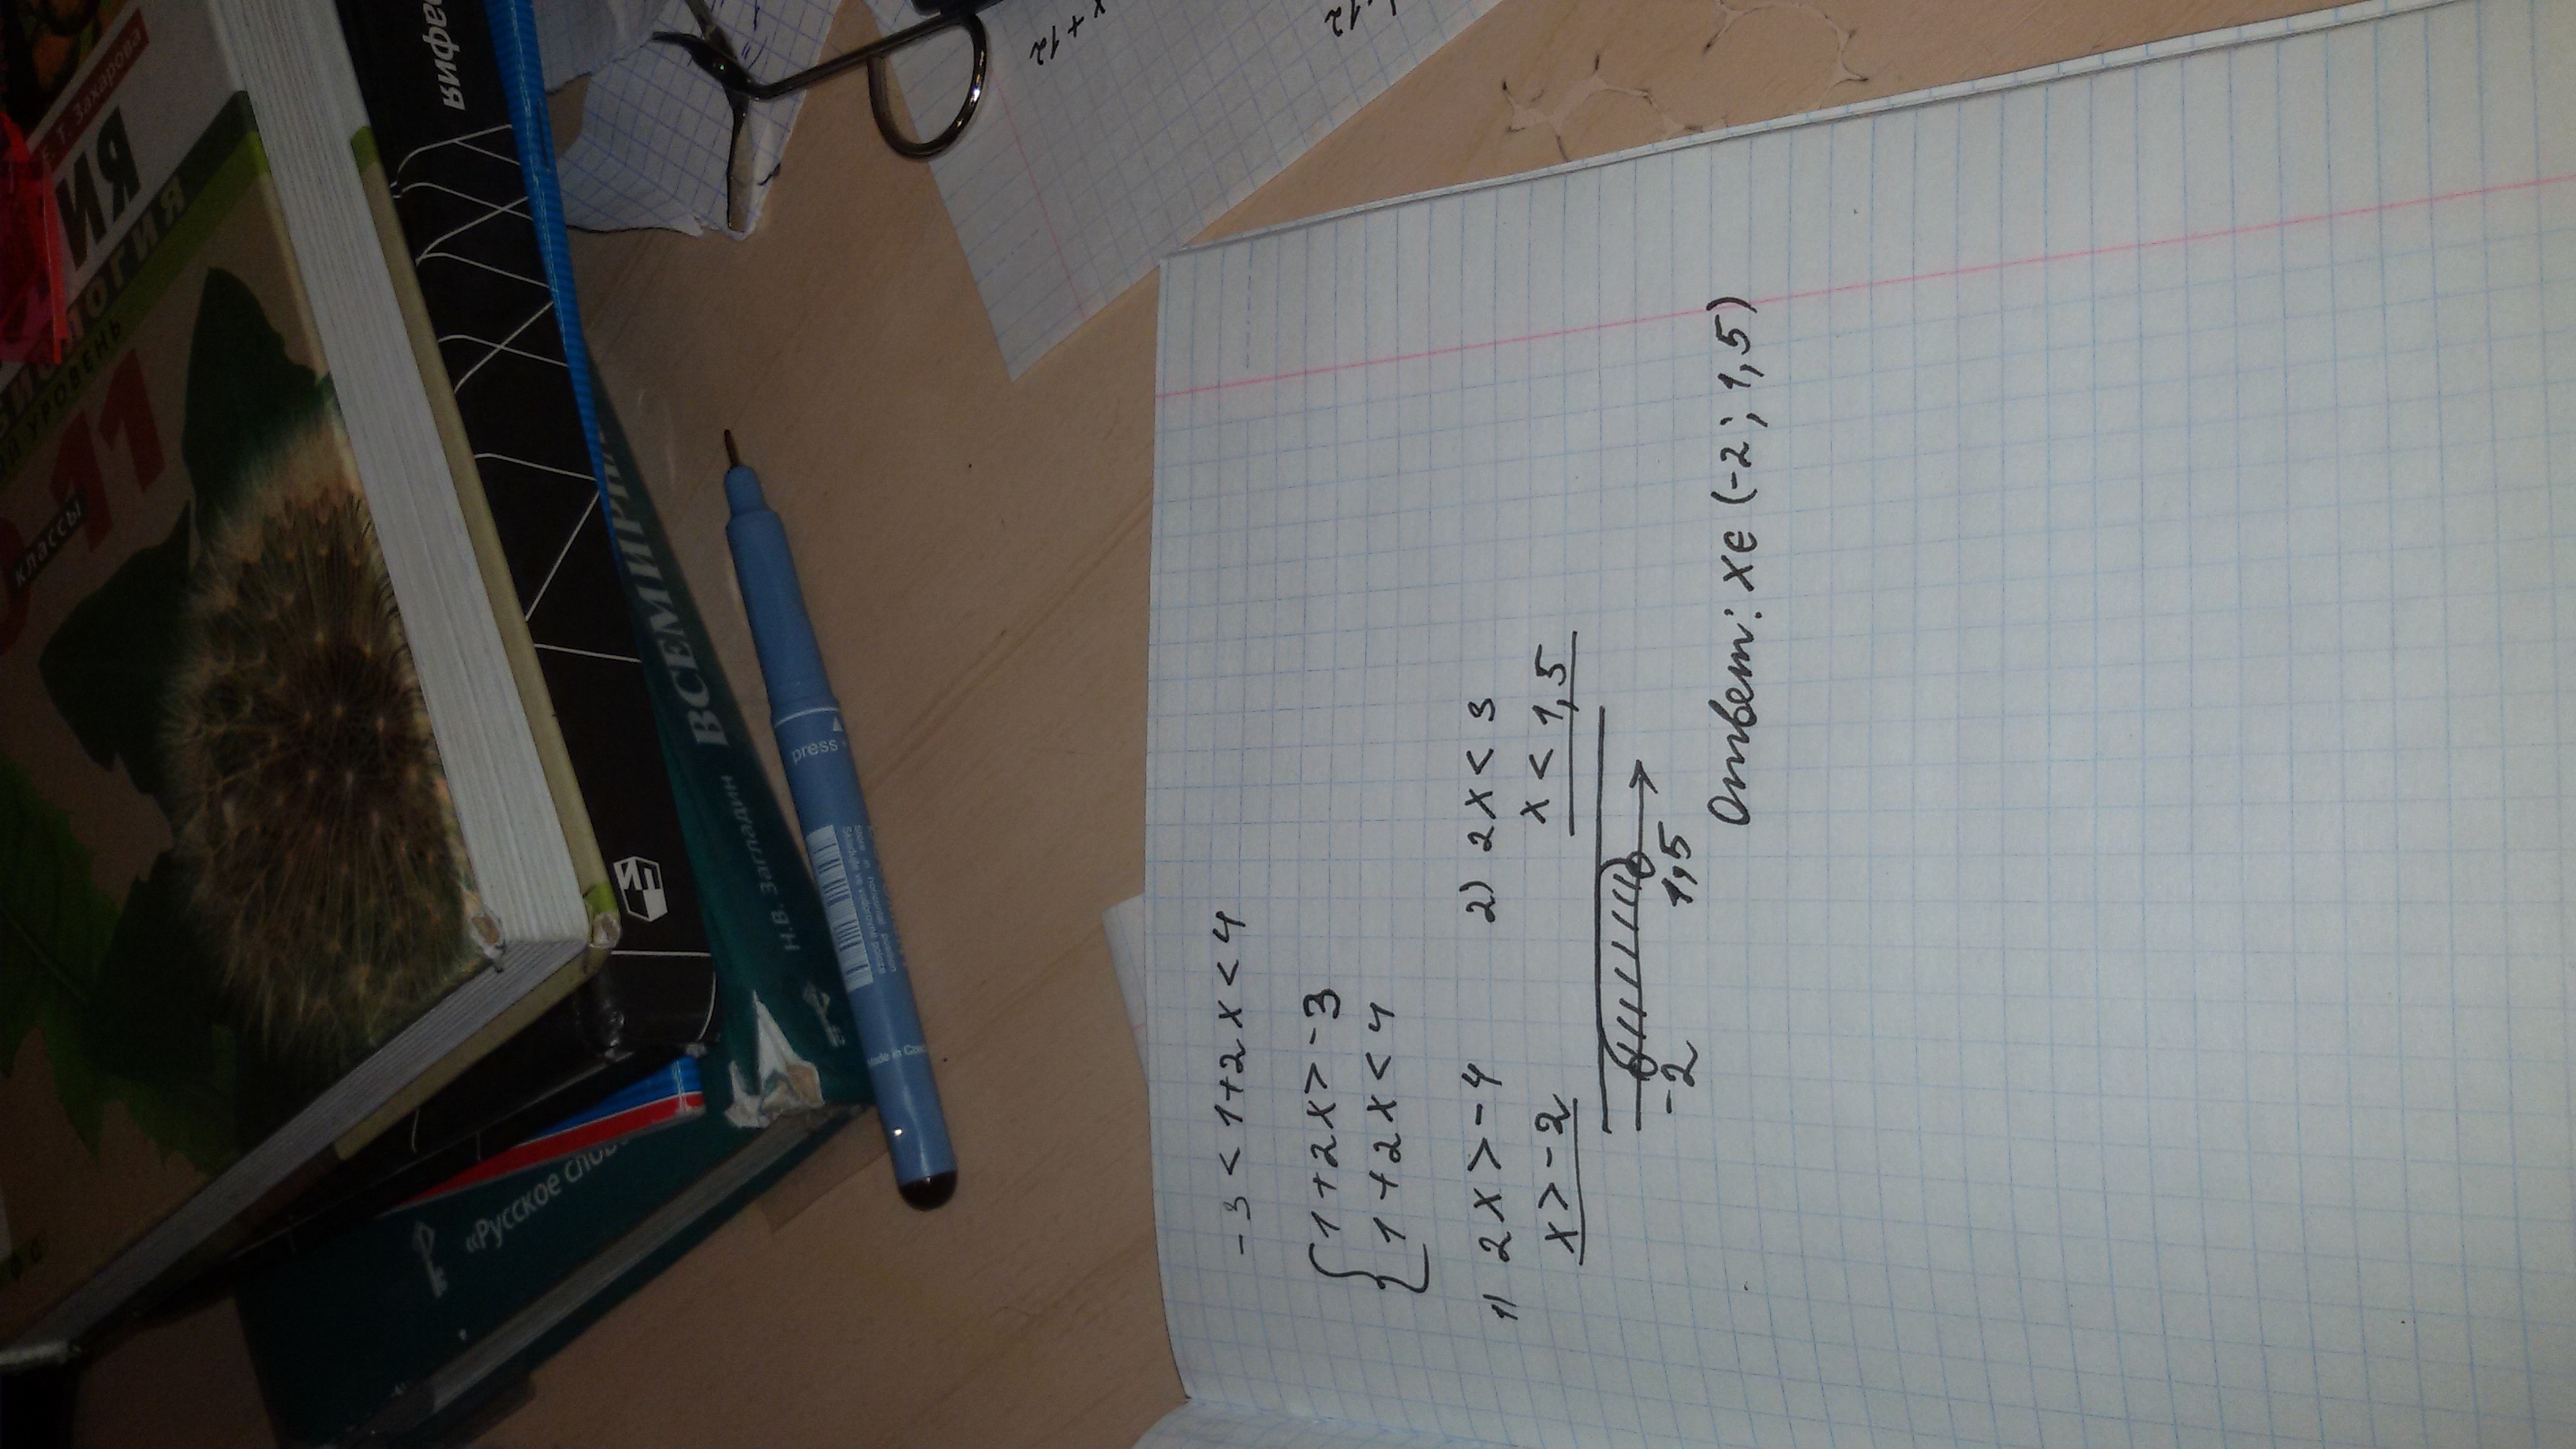 -3 < 1+2x < 4
1+2x > -3
1+2x < 4
1) 2x > -4 2) 2x < 3
x > -2 x < 1,5
-2 1,5
Ответ: x∈(-2; 1,5)
x+12
Т. Захарова
УРОВЕНЬ
классы
11
ВСЕМИРН
Н.В. Загладин
«Русское слов
press
Made in